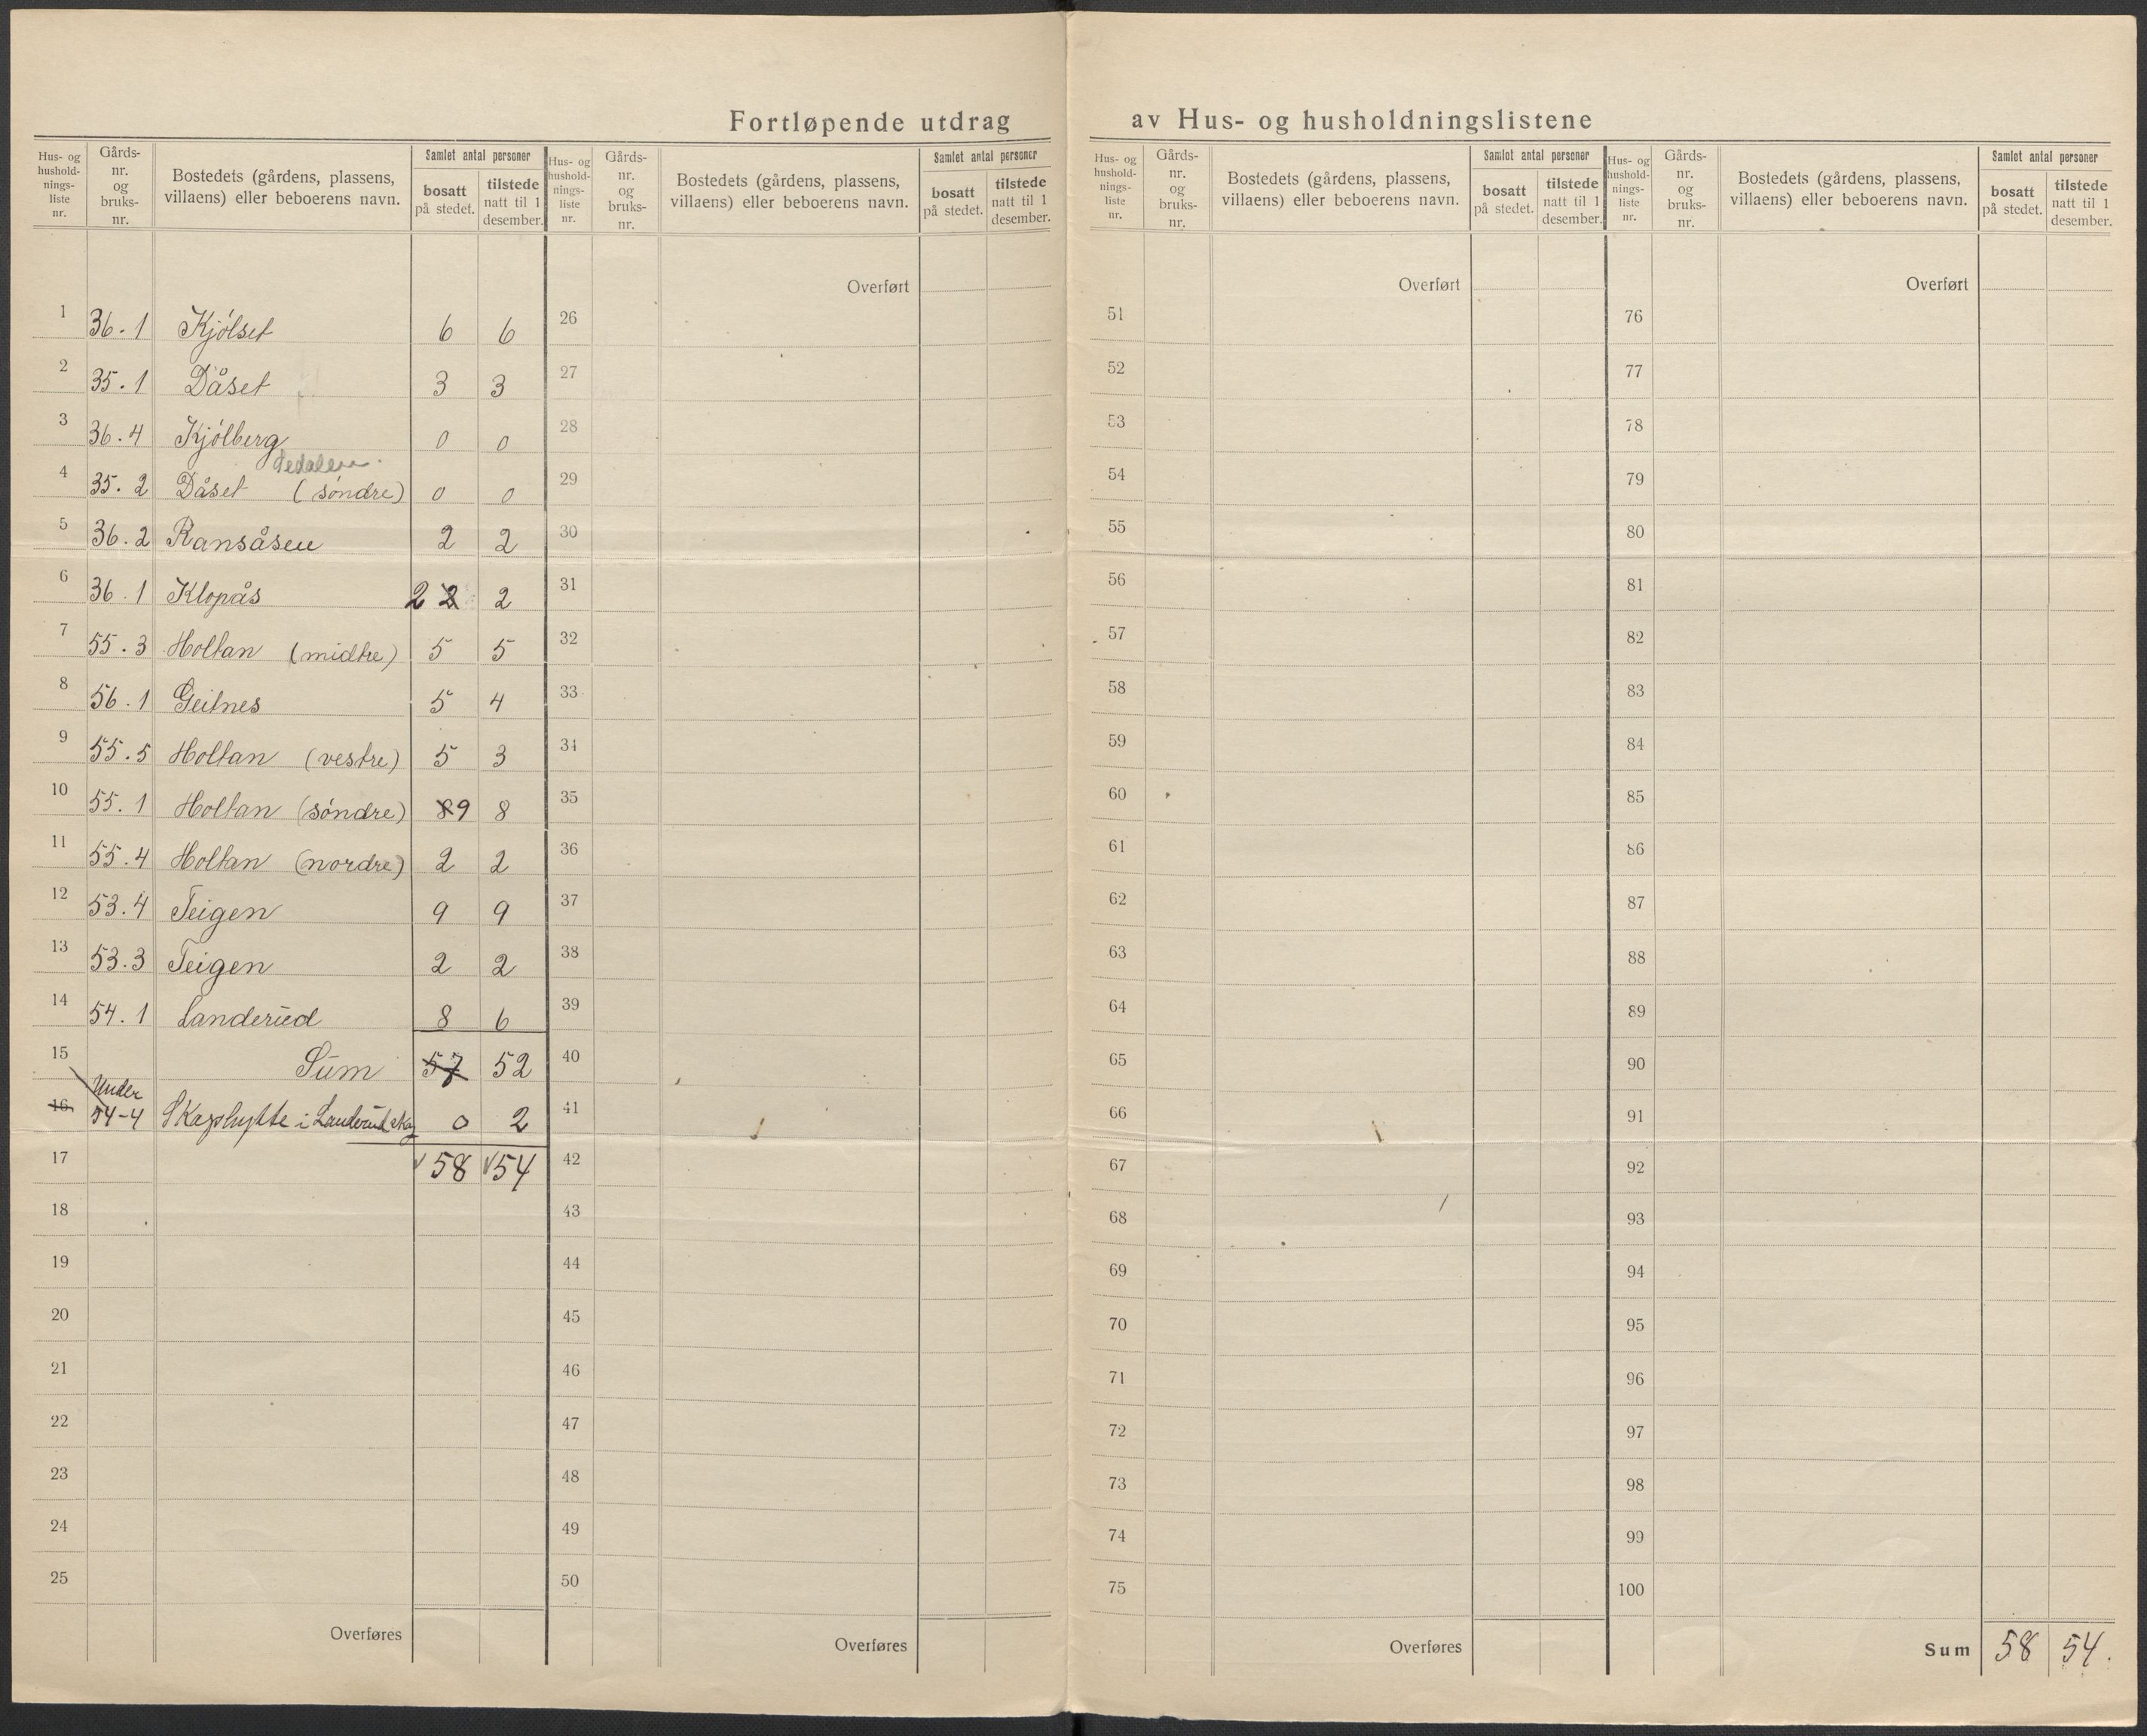 Fortløpende utdrag av Hus- og husholdningslistene
Hus- og hushold- nings- liste nr. Gårds- nr. og bruks- nr. Bostedets (gårdens, plassens, villaens) eller beboerens navn. Samlet antal personer bosatt på stedet. tilstede natt til 1 desember.
Hus- og hushold- nings- liste nr. Gårds- nr. og bruks- nr. Bostedets (gårdens, plassens, villaens) eller beboerens navn. Samlet antal personer bosatt på stedet. tilstede natt til 1 desember.
Hus- og hushold- nings- liste nr. Gårds- nr. og bruks- nr. Bostedets (gårdens, plassens, villaens) eller beboerens navn. Samlet antal personer bosatt på stedet. tilstede natt til 1 desember.
Hus- og hushold- nings- liste nr. Gårds- nr. og bruks- nr. Bostedets (gårdens, plassens, villaens) eller beboerens navn. Samlet antal personer bosatt på stedet. tilstede natt til 1 desember.
1 36.1 Kjólset 6 6
2 35.1 Dåset 3 3
3 36.4 Kjólberg 0 0
4 35.2 Dåset (söndre) 0 0
5 36.2 Ransåsen 2 2
6 36.1 Klopås 2 2 2
7 55.3 Holtan (midtre) 5 5
8 56.1 Geitnes 5 4
9 55.5 Holtan (vestre) 5 3
10 55.1 Holtan (söndre) 8 9 8
11 55.4 Holtan (nordre) 2 2
12 53.4 Teigen 9 9
13 53.3 Teigen 2 2
14 54.1 Landerud 8 6
15 Sum 57 52
Under
16 54-4 i Landerud skog 0 2
17 58 54
18
19
20
21
22
23
24
25
Overføres
Overført
26
27
28
29
30
31
32
33
34
35
36
37
38
39
40
41
42
43
44
45
46
47
48
49
50
Overføres
Overført
51
52
53
54
55
56
57
58
59
60
61
62
63
64
65
66
67
68
69
70
71
72
73
74
75
Overføres
Overført
76
77
78
79
80
81
82
83
84
85
86
87
88
89
90
91
92
93
94
95
96
97
98
99
100
Sum 58 54.